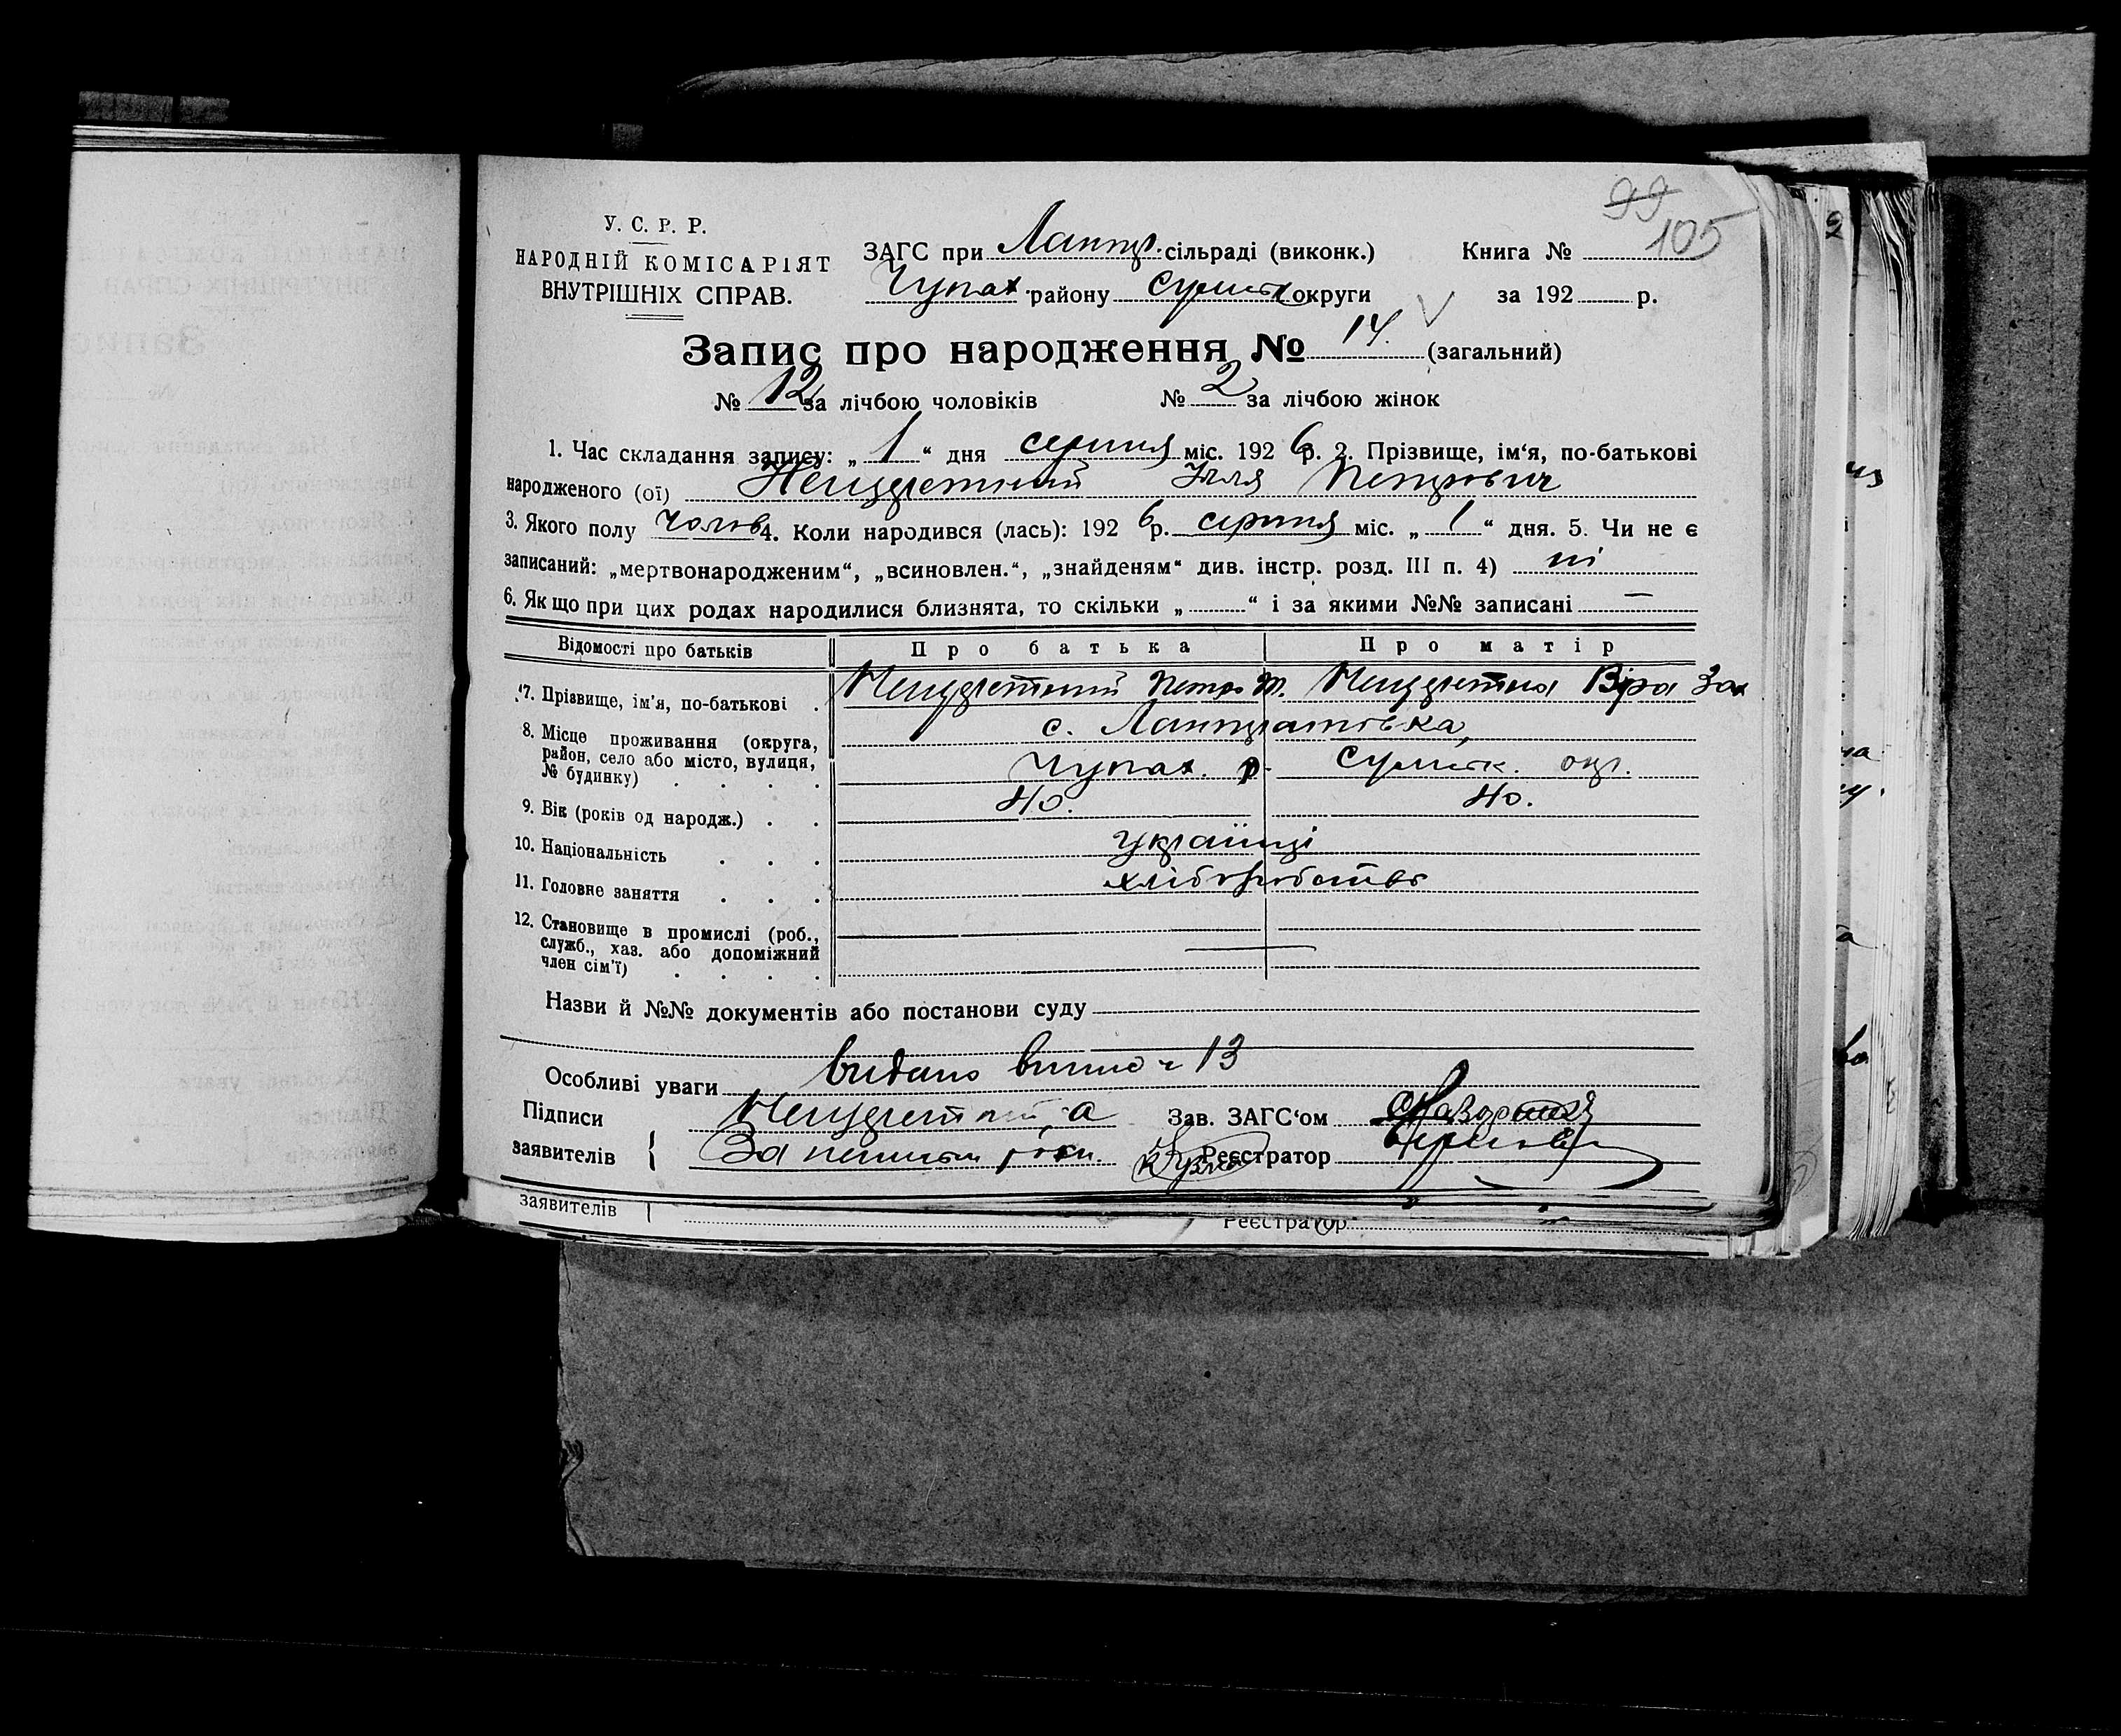 99
105
У. С. Р. Р.
НАРОДНІЙ КОМІСАРІЯТ
ВНУТРІШНІХ СПРАВ.
ЗАГС при Лантр. сільраді (виконк.) Книга №
Чупах району Сумськ округи за 192 р.
Запис про народження № 14. (загальний)
№ 12 за лічбою чоловіків № 2 за лічбою жінок
1. Час складання запису: „ 1 “ дня серпня міс. 192 6 р. 2. Прізвище, ім‘я, по-батькові
народженого (ої) Ілля Петрович
3. Якого полу Чолов 4. Коли народився (лась): 192 6 р. серпня міс. „ 1 “ дня. 5. Чи не є
записаний: „мертвонародженим“, „всиновлен.“, „знайденям“ див. інстр. розд. III п. 4) ні
6. Якщо при цих родах народилися близнята, то скільки „ “ і за якими №№ записані —
Відомості про батьків Про батька Про матір
7. Прізвище, ім’я, по-батькові . Петро Віра Зах
8. Місце проживання (округа, район, село або місто, вулиця, № будинку) . . . .
с. Лантратовка,
Чупах. р. Сумськ. окр.
9. Вік (років од народж.) . . 40. 40.
10. Національність . . . українці
11. Головне заняття . . . хліборобство
12. Становище в промислі (роб., служб., хаз. або допоміжний член сім’ї) . . . . —
Назви й №№ документів або постанови суду
Особливі уваги видано 13
Підписи Зав. ЗАГС‘ом
заявителів { За Реєстратор
заявителів
Реєстратор